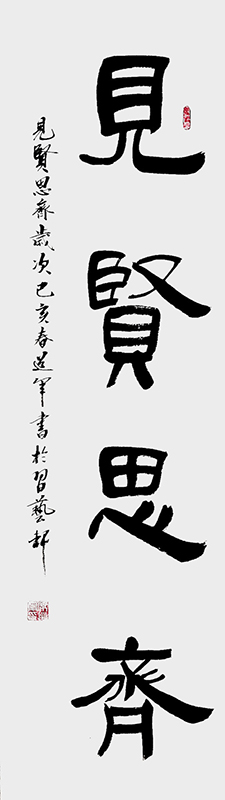 見賢思齊
見賢思齊歲次己亥春進軍書於習藝軒